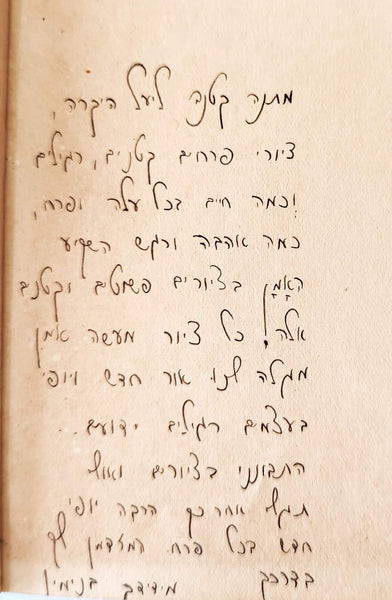 מתנה קטנה ליעל היקרה,
ציורי פרחים קטנים, רגילים
וכמה חיים בכל עלה ופרח,
כמה אהבה ורגש השקיע
האָמָן בציורים פשוטים וקטנים
אלה! כל ציור מעשה אמן
מגלה לנו אור חדש ויופי
בעצמים רגילים ידועים...
התבונני בציורים ואולי
תגלי אחר כך הרבה יופי
חדש בכל פרח המזדמן לך
בדרכך מידידך בנימין